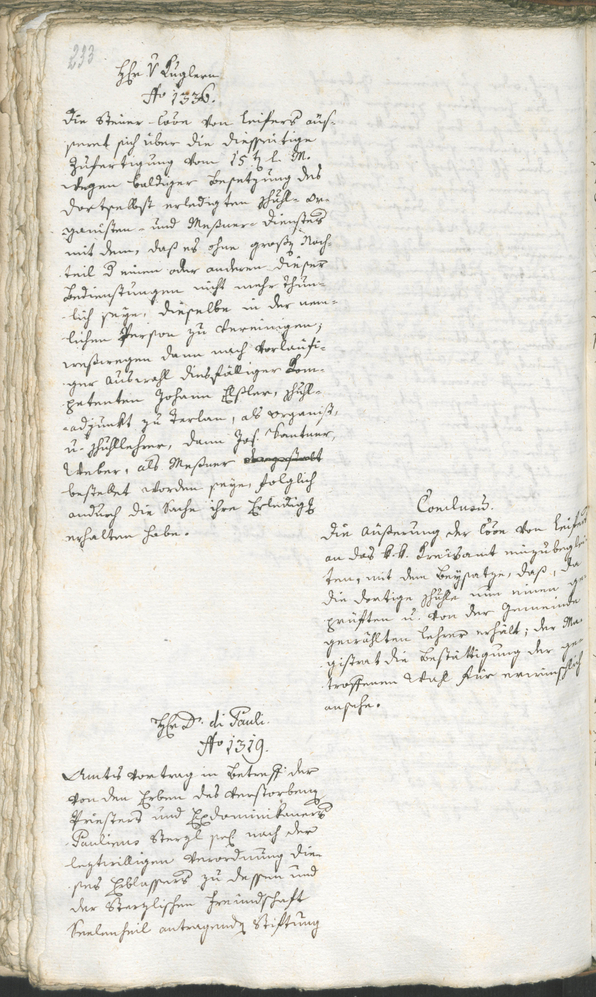 233
Hr. v Kuglern
No 1336.
Die Steuer-Cöe von Leifers äus-
seret sich über die diesseitige
Zufertigung vom 15 t. l. M.
wegen baldiger Besetzung des
dortselbst erledigten Schull- Or-
ganisten- und Meßner-Dienstes
mit dem, daß es ohne groß Nach-
teil d einen oder anderen dieser
Bedienstungen nicht mehr thun-
lich seye, dieselbe in der nem-
lichen Person zu vereinigen;
weßwegen dann nach vorläufi-
ger Auswahl diesfälliger Kom-
petenten Johann Elsler, Schull-
adjunkt zu Terlan, als Organist,
u. Schullehrer, dann Jos. Santner,
Weber, als Meßner
bestellet worden seye, folglich
andurch die Sache ihre Erledigg
erhalten habe.
Conclusum.
Die Äußerung der Cöe von Leifers
an das k. k. Kreisamt einzubeglei-
ten, mit dem Beysatze, daß, da
die dortige Schulle nun einen ge-
prüften u. von der Gemeinde
gewählten Lehrer erhält; der Ma-
gistrat die Bestättigung der ge-
troffenen Wahl für erwünschlich
ansehe.
Hr. D. di Pauli.
No 1319.
Amts Vortrag in Betreff der
von den Erben des verstorbeng
Priesters und Exdominikaners
Paulinus Sterzl sel. nach der
leztwilligen Verordnung die-
ses Erblassers zu dessen und
der Sterzlischen Freundschaft
Seelenheil antragende Stiftung